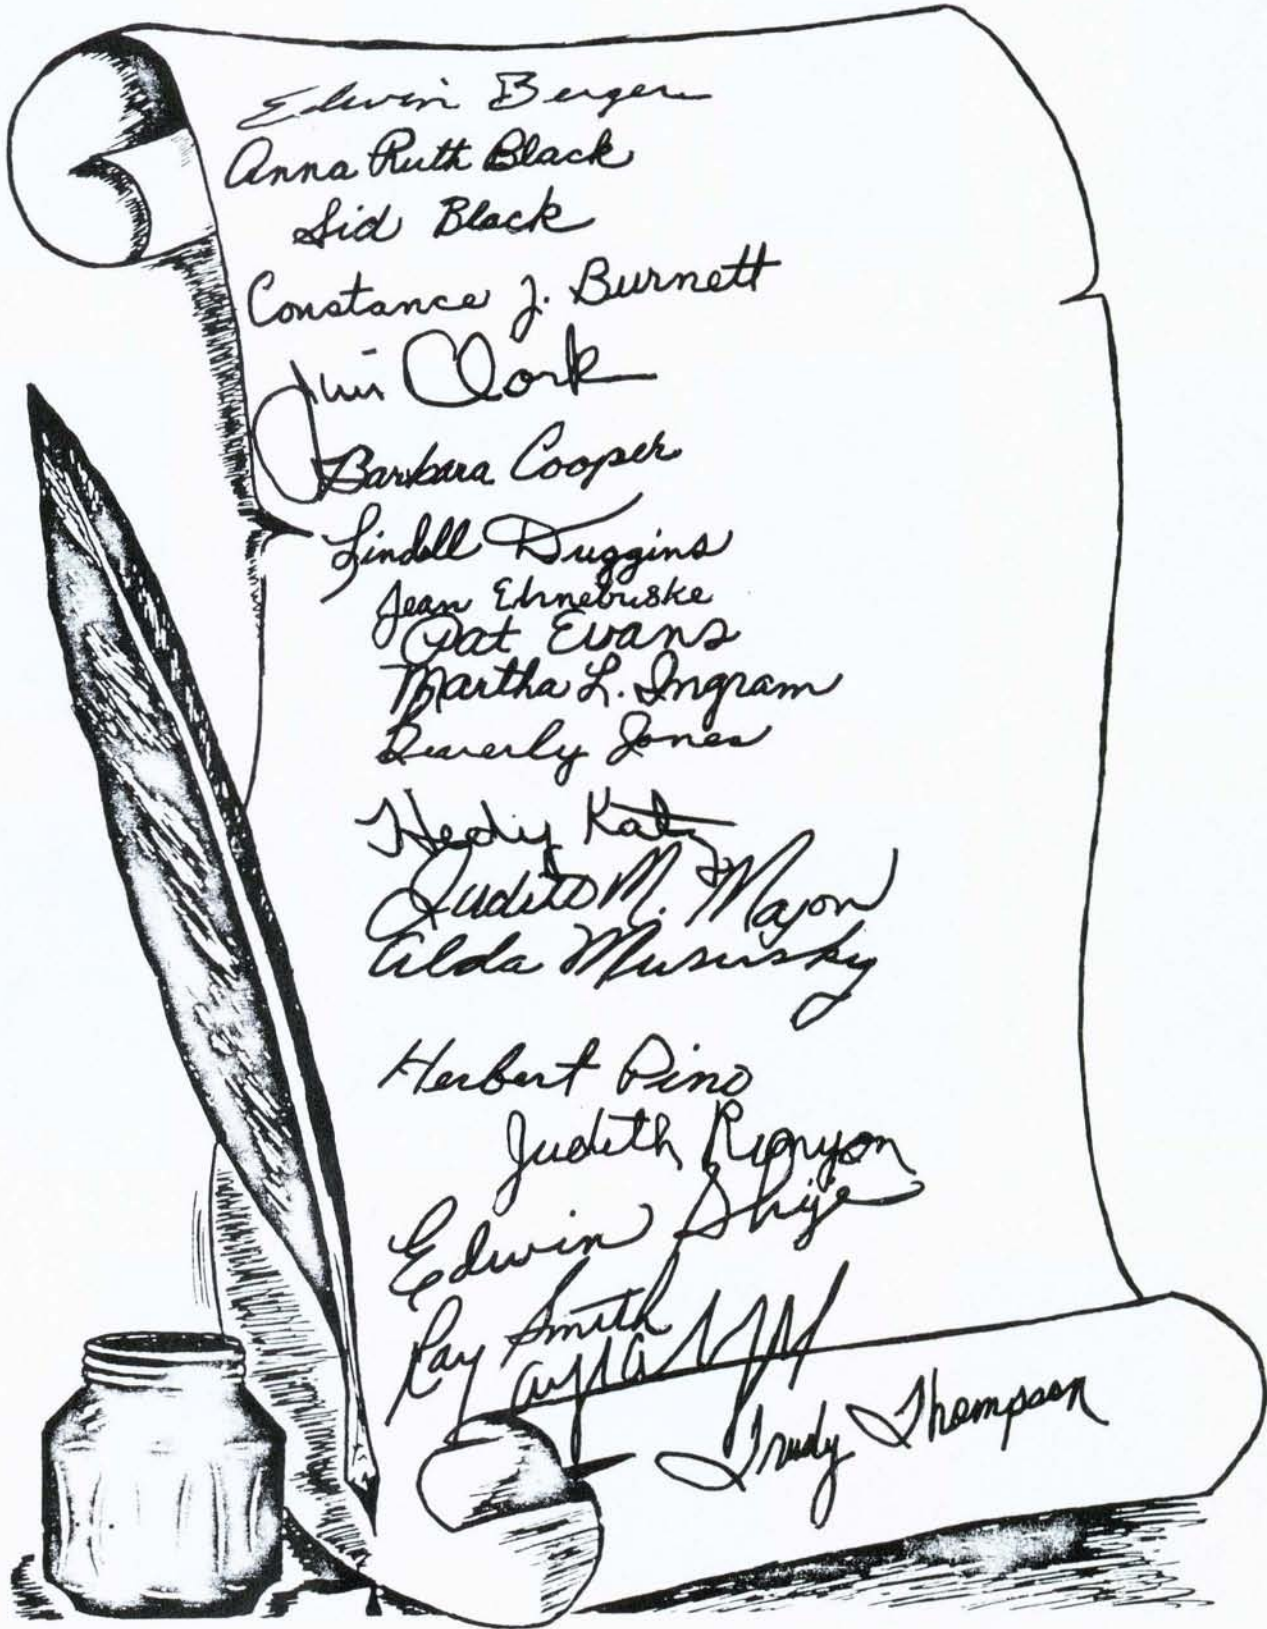 Edwin Berger
Anna Ruth Black
Sid Black
Constance J. Burnett
Jim Clark
Barbara Cooper
Lindell Duggins
Jean Ehnebuske
Pat Evans
Martha L. Ingram
Beverly Jones
Hediy Katz
Judith M. Mayon
Alda Musursky
Herbert Pino
Judith Runyon
Edwin Shije
Ray Smith
Trudy Thompson